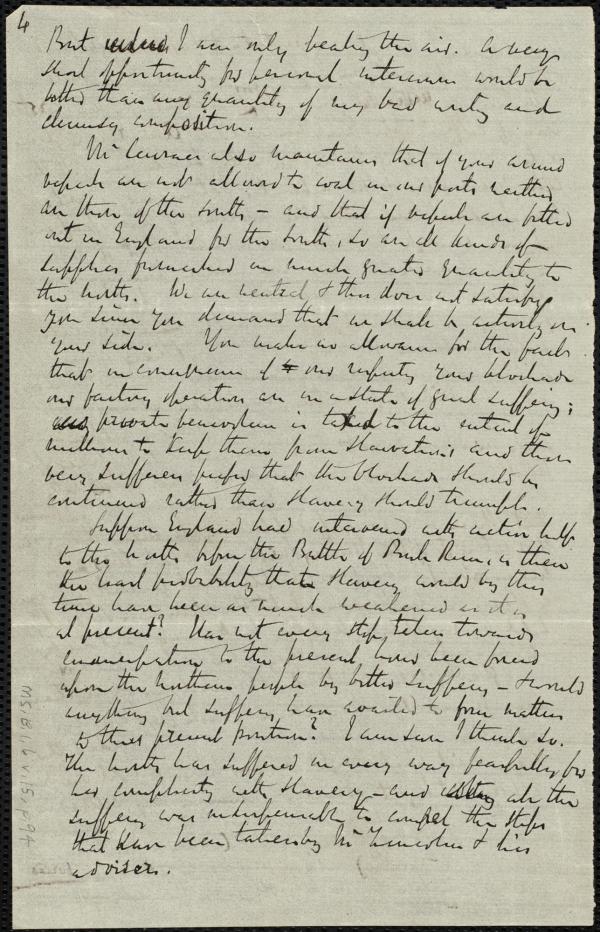 4
But I am only beating the air. A very
short opportunity for personal interview would be
better than any quantity of my bad writing and
clumsy composition.
Mr also maintains that if your armed
vessels are not allowed to coal in our ports neither
are those of the South – and that if vessels are fitted
out in England for the South, so are all kinds of
supplies furnished in much greater quantity to
the North. We are neutral, & this does not satisfy
you since you demand that we shall be actively on
your side. You make no allowance for the fact
that in consequence of our respecting your blockade
our factory operatives are in a state of great suffering;
private benevolence is taxed to the extent of
millions to keep them from starvation and these
very sufferers prefer that the blockade should be
continued rather than Slavery should triumph.
Suppose England had intervened with active help
to the North before the Battle of Bull Run, is there
the least probability that Slavery would by this
time have been as much weakened as it is
at present? Has not every step taken towards
emancipation to the present hour been forced
upon the Northern people by bitter suffering – & would
anything but suffering have availed to force matters
to their present position? I am sure I think so.
The North has suffered in every way fearfully for
her complicity with Slavery – and all this
suffering was indispensable to compel the steps
that have been taken by Mr Lincoln & his
advisers.
MS. B. 1. 6 v. 15, p. 94